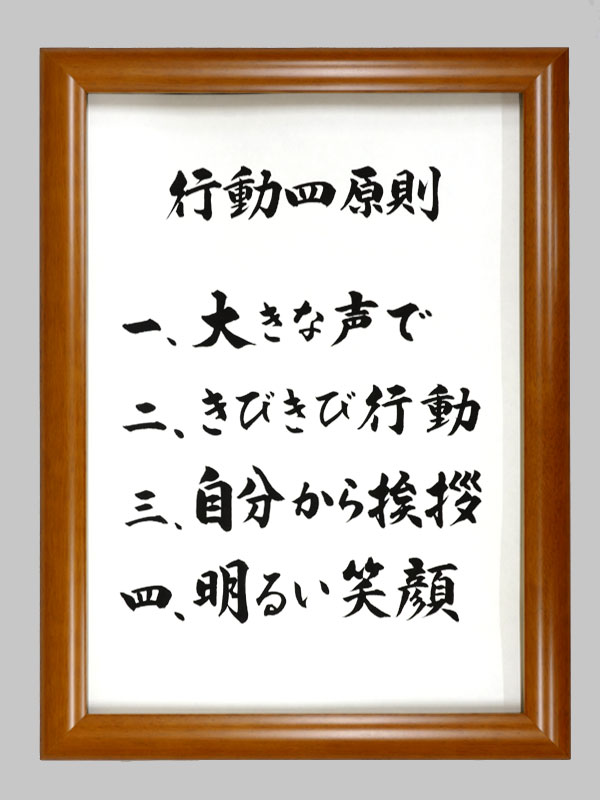 行動四原則
一、大きな声で
二、きびきび行動
三、自分から挨拶
四、明るい笑顔